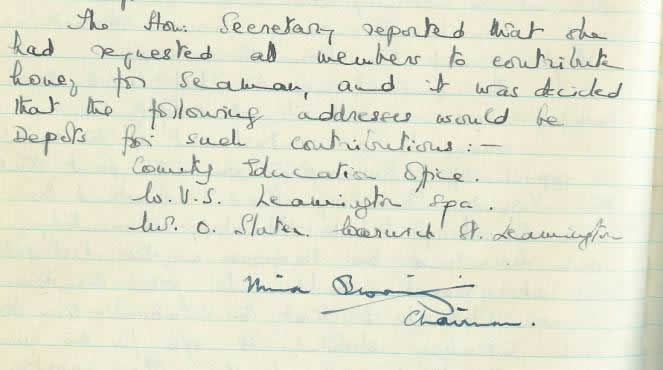 The Hon: Secretary reported that she
had requested all members to contribute
honey for Seaman, and it was decided
that the following addresses would be
Depots for such contributions:—
County Education Office.
W.V.S. Leamington Spa.
O. Slater. Warwick St. Leamington
Chairman.